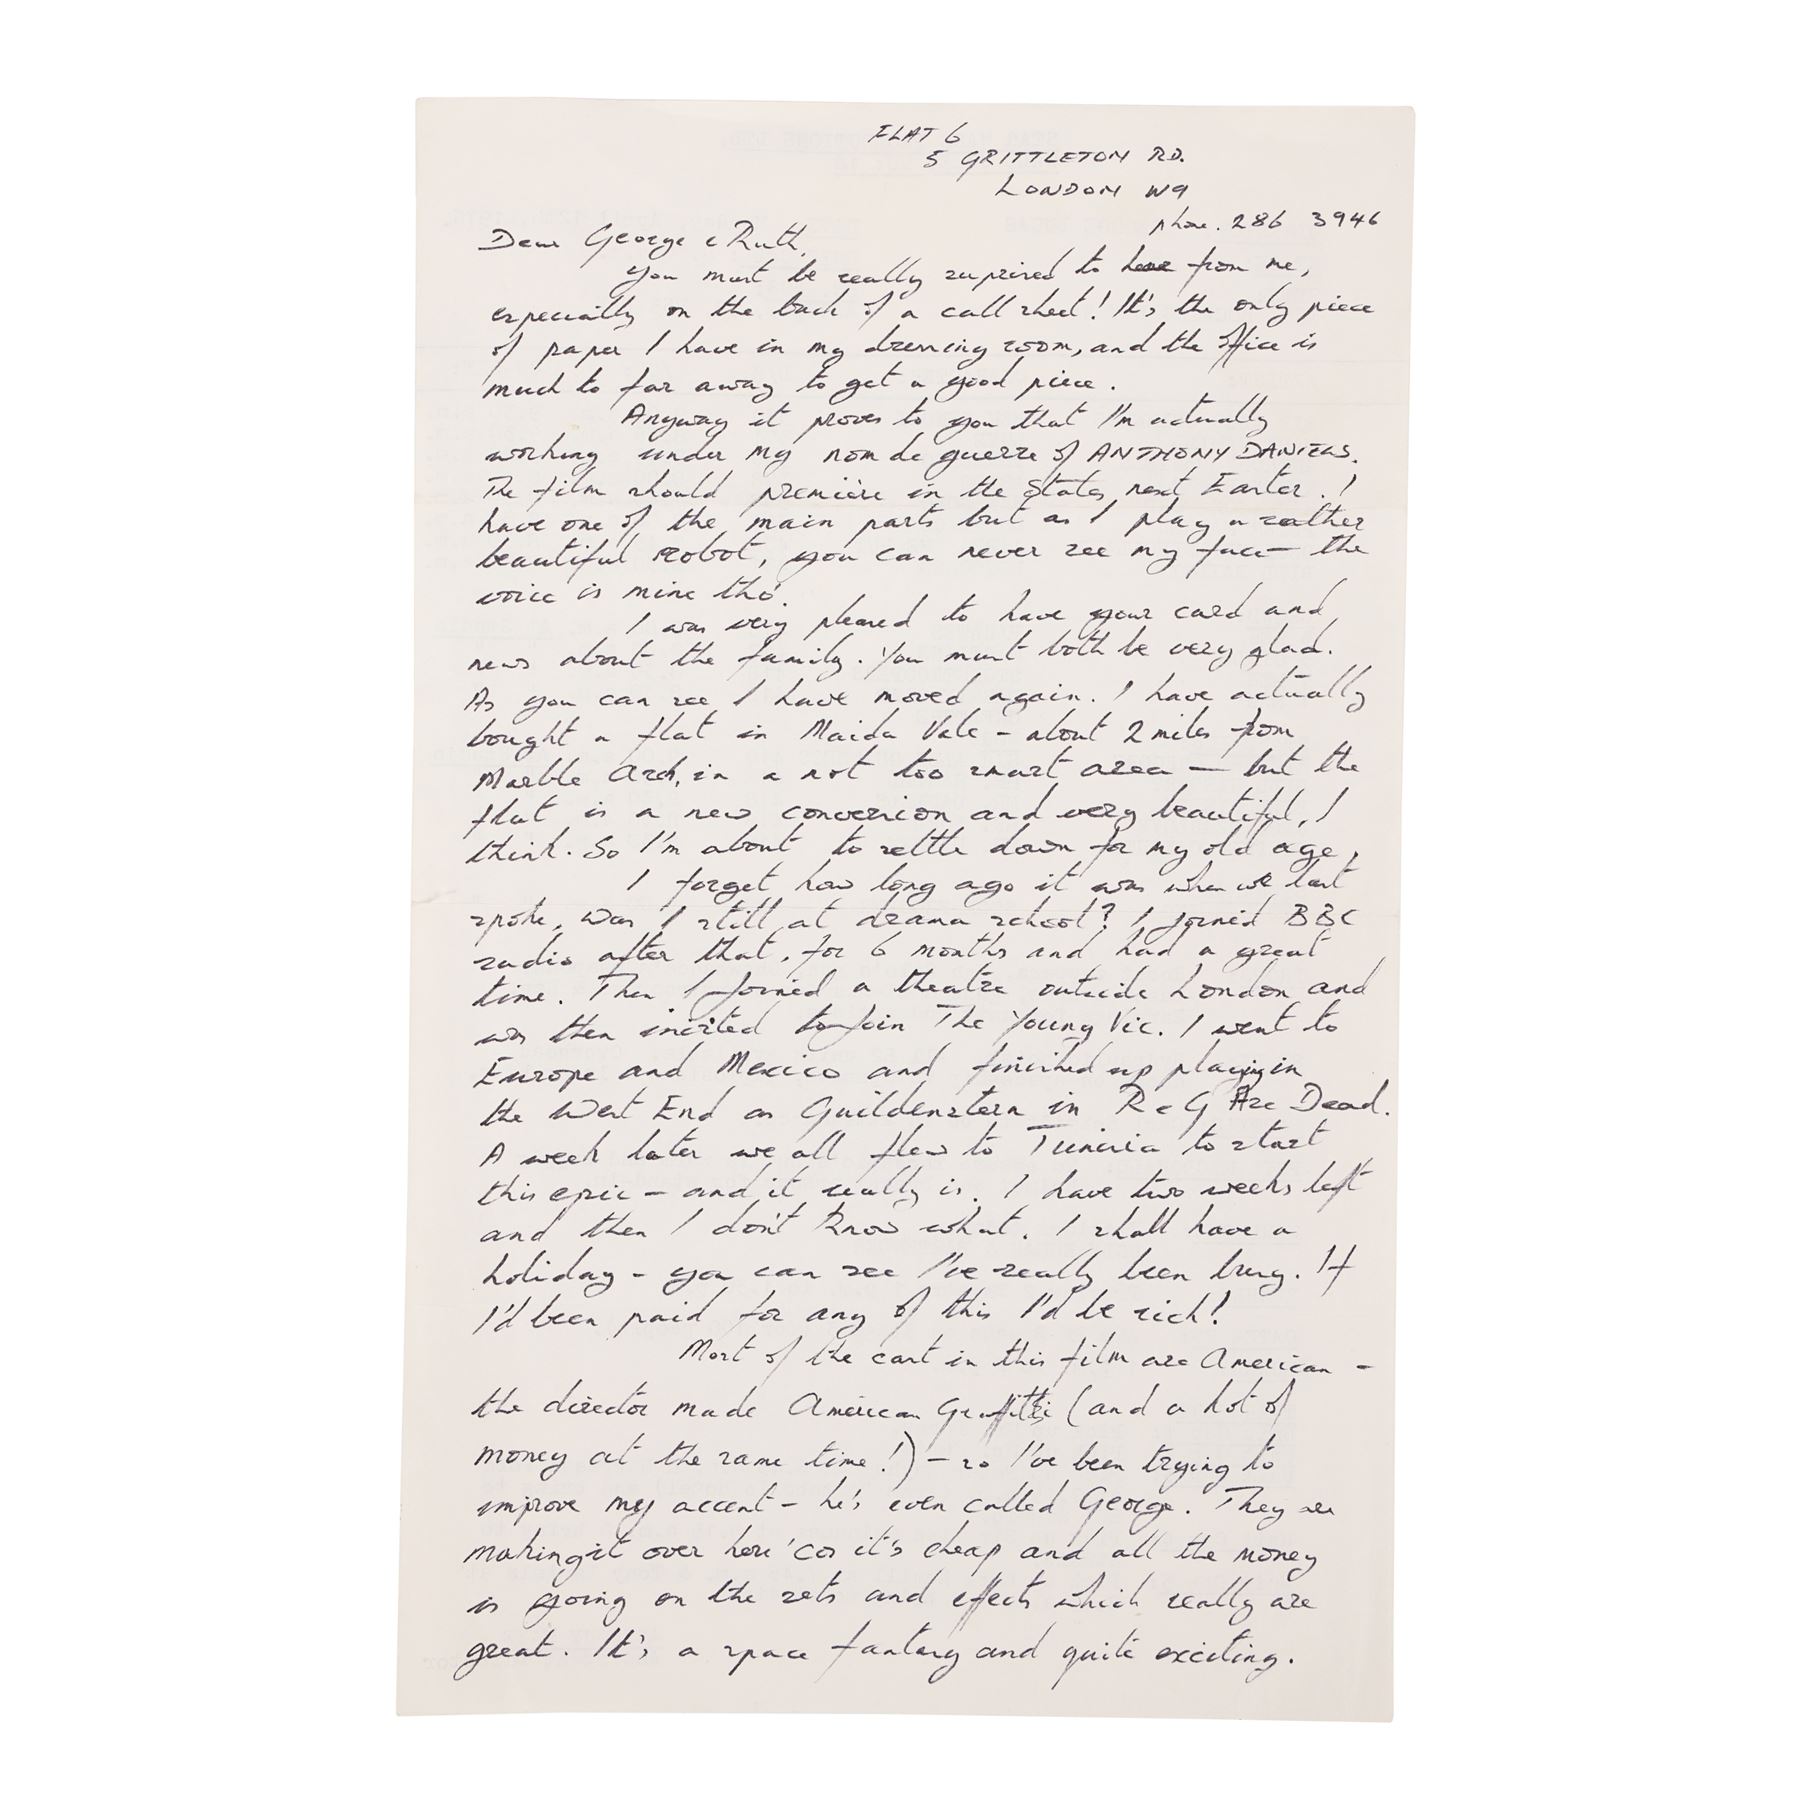 FLAT 6
5 GRITTLETON RD.
LONDON W9
phone. 286 3946
Dear George & Ruth,
You must be really suprised to hear from me,
especially on the back of a call sheet! It's the only piece
of paper I have in my dressing room, and the office is
much to far away to get a good piece.
Anyway it proves to you that I'm actually
working under my nom de guerre of ANTHONY DANIELS.
The film should première in the States next Easter. I
have one of the main parts but as I play a rather
beautiful robot, you can never see my face - the
voice is mine tho'.
I was very pleased to have your card and
news about the family. You must both be very glad.
As you can see I have moved again. I have actually
bought a flat in Maida Vale - about 2 miles from
Marble Arch, in a not too smart area - but the
flat is a new conversion and very beautiful, I
think. So I'm about to settle down for my old age.
I forget how long ago it was when we last
spoke, was I still at drama school? I joined BBC
radio after that, for 6 months and had a great
time. Then I joined a theatre outside London and
was then invited to join The Young Vic. I went to
Europe and Mexico and finished up playing in
the West End as Guildenstern in R & G Are Dead.
A week later we all flew to Tunisia to start
this epic - and it really is. I have two weeks left
and then I don't know what. I shall have a
holiday - you can see I've really been busy. If
I'd been paid for any of this I'd be rich!
Most of the cast in this film are American -
the director made American Graffitti (and a lot of
money at the same time!) - so I've been trying to
improve my accent - he's even called George. They are
making it over here 'cos it's cheap and all the money
is going on the sets and effects which really are
great. It's a space fantasy and quite exciting.